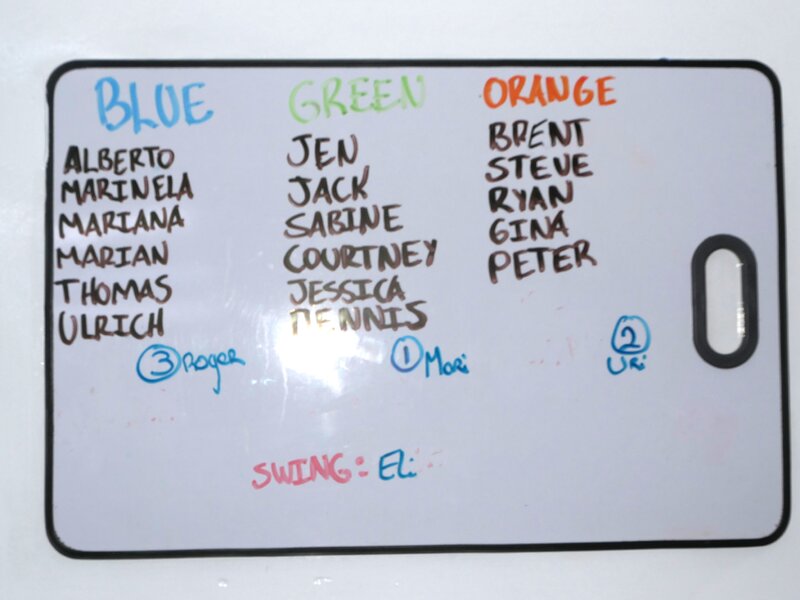 BLUE
ALBERTO
MARINELA
MARIANA
MARIAN
THOMAS
ULRICH
③ Roger
GREEN
JEN
JACK
SABINE
COURTNEY
JESSICA
DENNIS
① Mori
ORANGE
BRENT
STEVE
RYAN
GINA
PETER
②
Uri
SWING: Eli